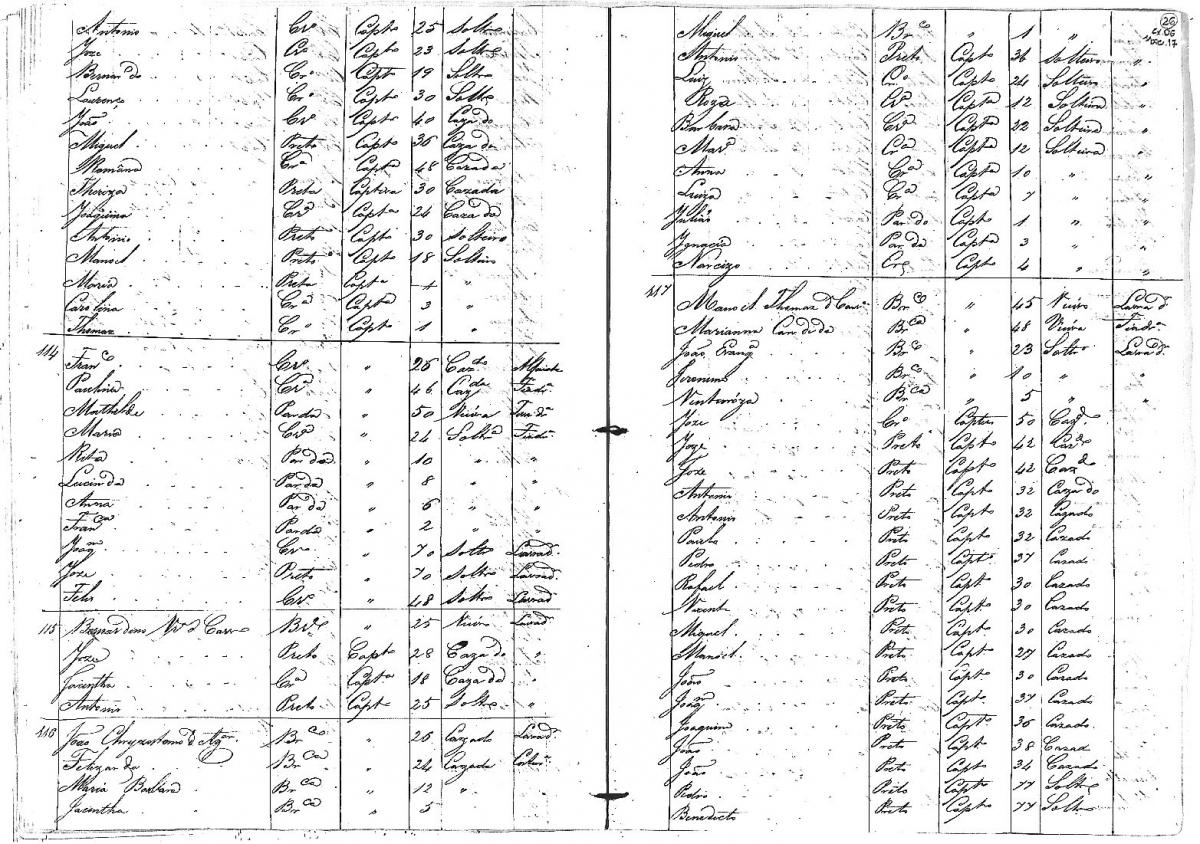 Antonio Cr.º Capt.º 25 Soltr.º
Joze Cr.º Capt.º 23 Soltr.º
Bernar.do Cr.º Capt.º 19 Soltr.º
Lourenço Cr.º Capt.º 30 Soltr.º
João Cr.º Capt.º 40 Cazado
Miguel Preto Capt.º 36 Cazado
Romána Cr.a Capt.a 48 Cazada
Thereza Preta Captiva 30 Cazada
Joaquina Cr.a Capt.a 24 Cazada
Antonio Preto Capt.º 30 Solteiro
Manoel Preto Capt.º 18 Solteiro
Maria Preta Capt.a "
Carolina Cr.a Capt.a 3 "
Thomaz Cr.º Capt.º 1 "
114 Fran.co Cr.º " 26 Caz.do Alfaiate
Paschoa Cr.a " 46 Caz.da
Mathilde Parda " 50 Viuva
Maria Cr.a " 24 Soltr.a
Rita Parda " 10 " "
Lucinda Parda " 8 " "
Anna Parda " 6 " "
Fran.ca Parda " 2 " "
Joaq.m Cr.º " 70 Soltr.º Lavrad.
Joze Preto " 70 Soltr.º Lavrad.
Felis Cr.º " 48 Soltr.º Lavrad.
115 Bernardino Br.º " 25 Viuvo Lavrad.
Joze Preto Capt.º 28 Cazado "
Jacintha Cr.a Capt.a 18 Cazada "
Antonio Preto Capt.º 25 Soltr.º "
116 João Chryzostomo d Br.co " 26 Cazado Lavrad.
Felizarda Br.ca " 24 Cazada
Maria Barbara Br.ca " 12 "
Jacintha Br.ca " 5
26
Miguel Br.co " 1 "
Antonio Preto Capt.º 36 Solteiro "
Luiz Cr.º Capt.º 24 Solteiro "
Roza Cr.a Capt.a 12 Solteira "
Barbara Cr.a Capt.a 22 Solteira "
Mar.a Cr.a Capt.a 12 Solteira "
Anna Cr.a Capt.a 10 " "
Luiza Cr.a Capt.a 7 " "
Julião Pardo Capt.º 1 " "
Ignacia Parda Capt.a 3 " "
Narcizo Cr.º Capt.º 4 " "
117 Manoel Thomaz d Br.co " 45 Viuvo Lavrad.
Marianna Candida Br.ca " 48 Viuva
João Evang.ta Br.co " 23 Soltr.º Lavrad.
Jeronimo Br.co " 10 " "
Venturóza Br.ca " 5 " "
Joze Cr.º Captivo 50 Caz.do
Joze Preto Capt.º 42 Caz.do
Joze Preto Capt.º 42 Caz.do
Antonio Preto Capt.º 32 Cazado
Antonio Preto Capt.º 32 Cazado
Paulo Preto Capt.º 32 Cazado
Pedro Preto Capt.º 37 Cazado
Rafael Preto Capt.º 30 Cazado
Vicente Preto Capt.º 30 Cazado
Miguel Preto Capt.º 30 Cazado
Manoel Preto Capt.º 27 Cazado
João Preto Capt.º 30 Cazado
Joaq.m Preto Capt.º 37 Cazado
Joaquim Preto Capt.º 36 Cazado
João Preto Capt.º 38 Cazad
João Preto Capt.º 34 Cazado
Pedro Preto Capt.º 77 Soltr.º
Benedicto Preto Capt.º 77 Soltr.º